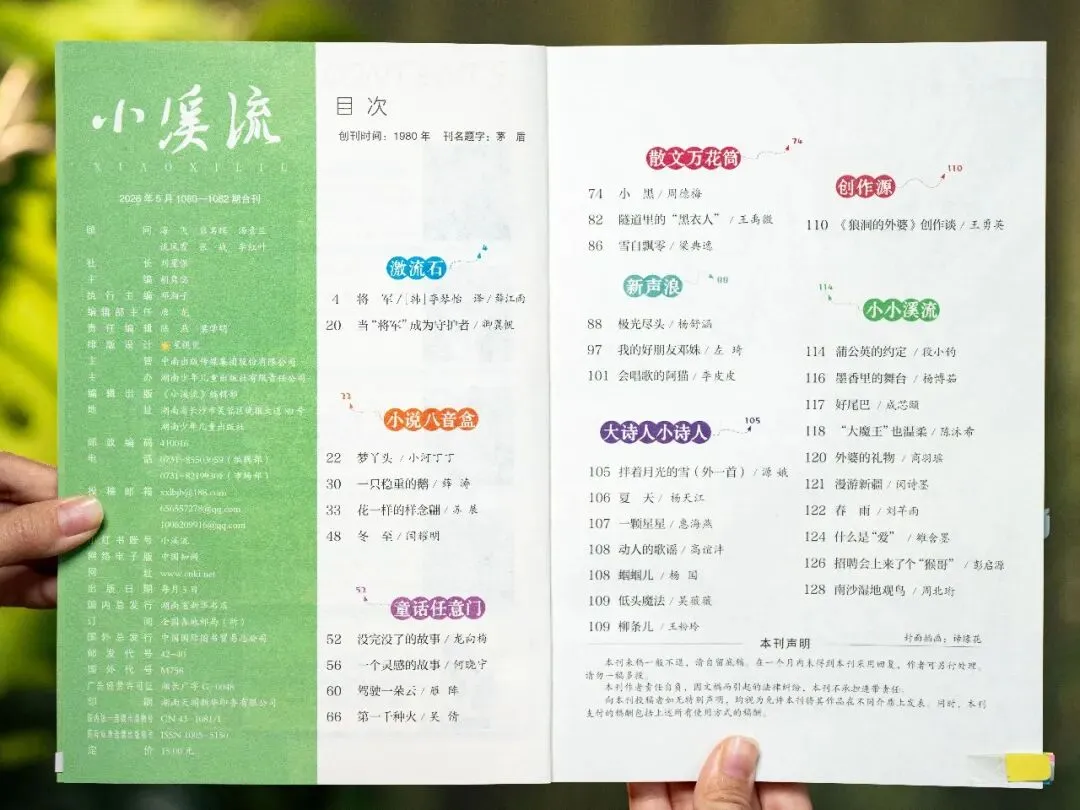 小溪流
XIAOXILIU
2026年5月 1080—1082期合刊
主 管 中南出版传媒集团股份有限公司
主 办 湖南少年儿童出版社有限责任公司
编辑出版 《小溪流》编辑部
湖南少年儿童出版社
邮政编码 410016
小红书账号 小溪流
网络电子版 中国知网
网 址 www.cnki.net
出版日期 每月5日
国内总发行 湖南省新华书店
订 阅 全国各地邮局（所）
国外总发行 中国国际图书贸易总公司
邮发代号 42-40
国外代号 M756
定 价 15.00元
目 次
创刊时间：1980年 刊名题字：茅 盾
激流石 4
4 将 军/[韩]李琴怡 译/薛江雨
20 当“将军”成为守护者/
小说八音盒 22
22 梦丫头/小河丁丁
30 一只稳重的鹅/薛 涛
33 花一样的样念翩/苏 展
48 冬 至/闫耀明
童话任意门 52
52 没完没了的故事/龙向梅
56 一个灵感的故事/何晓宁
60 驾驶一朵云/雁 阵
66 第一千种火/吴 倩
散文万花筒 74
74 小 黑/周德梅
82 隧道里的“黑衣人”/王禹微
86 雪白飘零/梁典逸
新声浪 88
88 极光尽头/杨舒涵
97 我的好朋友邓妹/左 琦
101 会唱歌的阿猫/李皮皮
大诗人小诗人 105
105 拌着月光的雪（外一首）/源 娥
106 夏 天/杨天江
107 一颗星星/惠海燕
108 动人的歌谣/高谊沣
108 蝈蝈儿/杨 国
109 低头魔法/吴璇璇
109 柳条儿/王盼玲
创作源 110
110 《狼洞的外婆》创作谈/王勇英
小小溪流 114
114 蒲公英的约定/段小钧
116 墨香里的舞台/杨博茹
117 好尾巴/成芯颐
118 “大魔王”也温柔/陈沐希
120 外婆的礼物/商羽瑶
121 漫游新疆/闵诗墨
122 春 雨/刘芊雨
124 什么是“爱”/雒舍墨
126 招聘会上来了个“猴哥”/彭启源
128 南沙湿地观鸟/周北珩
封面插画：谛缘花
本刊声明
本刊来稿一般不退，请自留底稿。在一个月内未得到本刊采用回复，作者可另行处理。
请勿一稿多投。
本刊作者责任自负，因文稿而引起的法律纠纷，本刊不承担连带责任。
向本刊投稿者如无特别声明，均视为允许本刊将其作品在不同介质上发表。同时，本刊
支付的稿酬包括上述所有使用方式的稿酬。